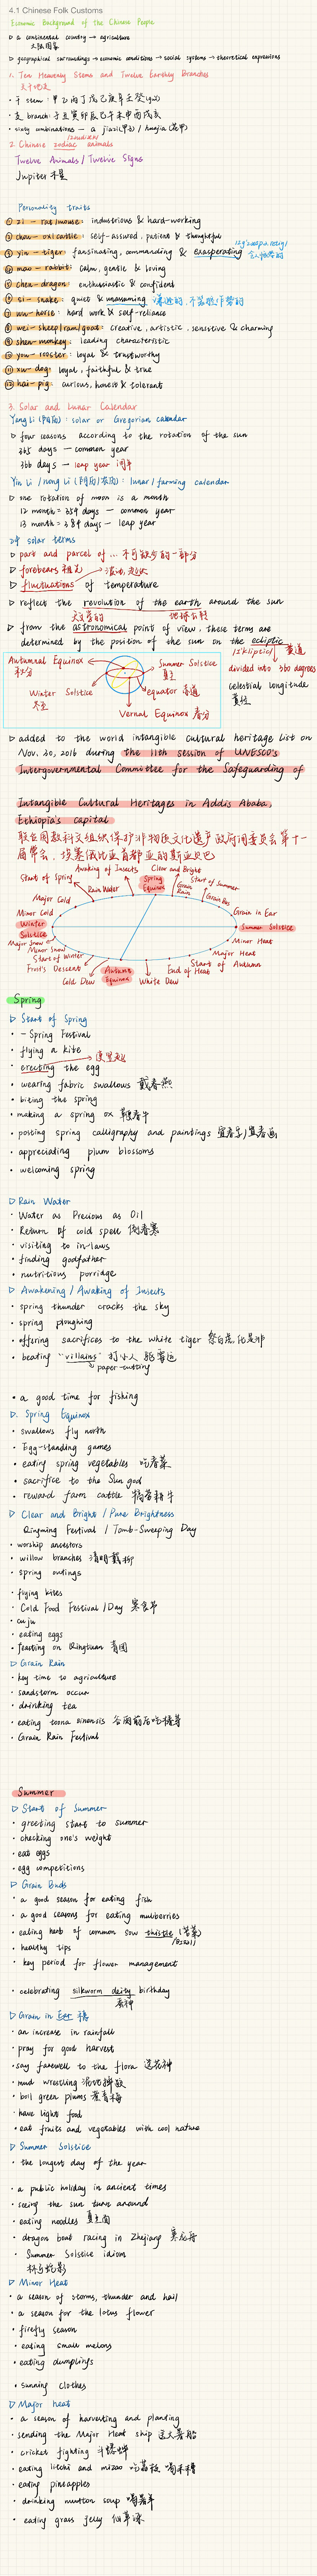 4.1 Chinese Folk Customs
Economic Background of the Chinese People
▷ a continental country → agriculture
大陆国家
▷ geographical surroundings → economic conditions → social systems → theoretical expressions
1. Ten Heavenly Stems and Twelve Earthly Branches
天干地支
· 干 stem : 甲乙丙丁戊己庚辛壬癸(guǐ)
· 支 branch: 子丑寅卯辰巳午未申酉戌亥
· sixty combinations — a jiazi(甲子) / huajia (花甲)
2. Chinese zodiac animals
Twelve Animals / Twelve Signs
Jupiter 木星
Personality traits
① zi — rat/mouse: industrious & hard-working
② chou — ox/cattle: self-assured, patient & thoughtful
③ yin — tiger: fansinating, commanding & exasperating
④ mao — rabbit: calm, gentle & loving
⑤ chen — dragon: enthusiastic & confident
⑥ si — snake: quiet & unassuming 谦逊的, 不装腔作势的
⑦ wu — horse: hard work & self-reliance
⑧ wei — sheep/ram/goat: creative, artistic, sensitive & charming
⑨ shen — monkey: leading characteristic
⑩ you — rooster: loyal & trustworthy
⑪ xu — dog: loyal, faithful & true
⑫ hai — pig: curious, honest & tolerant
3. Solar and Lunar Calendar
Yang Li (阳历): solar or Gregorian calendar
▷ four seasons according to the rotation of the sun
365 days — common year
366 days — leap year 闰年
Yin Li / Nong Li (阴历/农历): lunar/farming calendar
▷ one rotation of moon is a month
12 month = 354 days — common year
13 month = 384 days — leap year
24 solar terms
▷ part and parcel of ... 不可缺少的一部分
▷ forebears 祖先
▷ fluctuations of temperature
▷ reflect the revolution of the earth around the sun
天文学的 地球公转
▷ from the astronomical point of view, these terms are
determined by the position of the sun on the ecliptic
/ɪ'klɪptɪk/ 黄道
divided into 360 degrees
celestial longitude
黄经
Autumnal Equinox
秋分
Summer Solstice
夏至
Winter Solstice
冬至
equator 赤道
Vernal Equinox 春分
▷ added to the world intangible cultural heritage list on
Nov. 30, 2016 during the 11th session of UNESCO's
Intergovernmental Committee for the Safeguarding of
Intangible Cultural Heritages in Addis Ababa,
Ethiopia's capital
联合国教科文组织保护非物质文化遗产政府间委员会第十一
届常会, 埃塞俄比亚首都亚的斯亚贝巴
Awaking of Insects
Clear and Bright
Start of Spring
Rain Water
Spring Equinox
Grain Rain
Start of Summer
Major Cold
Grain Buds
Minor Cold
Grain in Ear
Winter Solstice
Summer Solstice
Major Snow
Minor Heat
Minor Snow
Major Heat
Start of Winter
Start of Autumn
Frost's Descent
End of Heat
Cold Dew
Autumn Equinox
White Dew
Spring
▷ Start of Spring
· — Spring Festival
· flying a kite
· erecting the egg
· wearing fabric swallows 戴春燕
· biting the spring
· making a spring ox 鞭春牛
· posting spring calligraphy and paintings 宜春字/宜春画
· appreciating plum blossoms
· welcoming spring
▷ Rain Water
· Water as Precious as Oil
· Return of cold spell 倒春寒
· visiting to in-laws
· finding godfather
· nutritious porridge
▷ Awakening / Awaking of Insects
· spring thunder cracks the sky
· spring ploughing
· offering sacrifices to the white tiger 祭白虎, 化是非
· beating "villains" 打小人 驱霉运
paper-cutting
· a good time for fishing
▷ Spring Equinox
· swallows fly north
· Egg-standing games
· eating spring vegetables 吃春菜
· sacrifice to the Sun god
· reward farm cattle 犒劳耕牛
▷ Clear and Bright / Pure Brightness
Qingming Festival / Tomb-Sweeping Day
· worship ancestors
· willow branches 清明戴柳
· spring outings
· flying kites
· Cold Food Festival / Day 寒食节
· cuju
· eating eggs
· feasting on Qingtuan 青团
▷ Grain Rain
· key time to agriculture
· sandstorm occur
· drinking tea
· eating toona sinensis 谷雨前后吃椿芽
· Grain Rain Festival
Summer
▷ Start of Summer
· greeting start to summer
· checking one's weight
· eat eggs
· egg competitions
▷ Grain Buds
· a good season for eating fish
· a good seasons for eating mulberries
· eating herb of common sow thistle (苦菜)
· healthy tips
· key period for flower management
· celebrating silkworm deity birthday
蚕神
▷ Grain in Ear 芒种
· an increase in rainfall
· pray for good harvest
· say farewell to the flora 送花神
· mud wrestling 泥地摔跤
· boil green plums 煮青梅
· have light food
· eat fruits and vegetables with cool nature
▷ Summer Solstice
· the longest day of the year
· a public holiday in ancient times
· seeing the sun turn around
· eating noodles 夏至面
· dragon boat racing in Zhejiang 赛龙舟
· Summer Solstice idiom
杯弓蛇影
▷ Minor Heat
· a season of storms, thunder and hail
· a season for the lotus flower
· firefly season
· eating small melons
· eating dumplings
· sunning clothes
▷ Major heat
· a season of harvesting and planting
· sending the Major Heat ship 送大暑船
· cricket fighting 斗蟋蟀
· eating litchi and mizao 吃荔枝 喝米糟
· eating pineapples
· drinking mutton soup 喝暑羊
· eating grass jelly 仙草冻